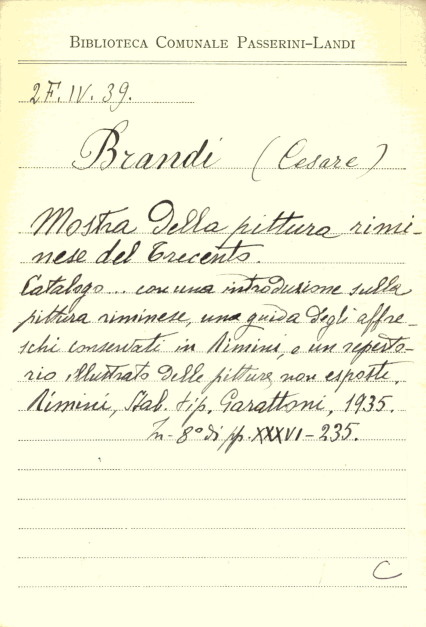 BIBLIOTECA COMUNALE PASSERINI-LANDI
2F. IV. 39.
Brandi (Cesare)
Mostra della pittura rimi-
nese del Trecento.
Catalogo... con una introduzione sulla
pittura riminese, una guida degli affre-
schi conservati in Rimini, e un reperto-
rio illustrato delle pitture non esposte.
Rimini, Stab. tip. Garattoni, 1935.
In-8° di pp. XXXVI-235.
C